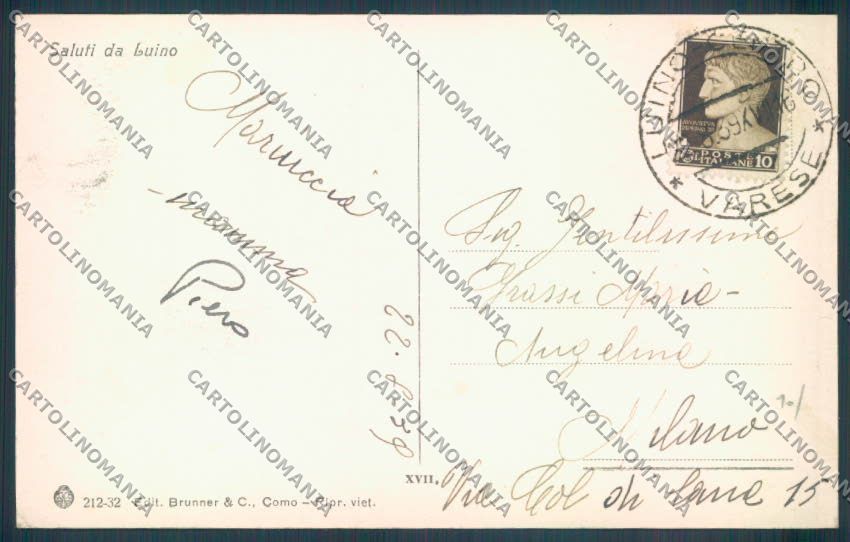 Saluti da Luino
Maruccia
mamma
Piero
22-8-39
212-32 Edit. Brunner & C., Como – Ripr. viet.
XVII.
LUINO
VARESE
POSTE
ITALIANE 10
Sig. Gentilissima
Grassi Maria-
Angelina
Milano
Via Col di Lana 15
CARTOLINOMANIA